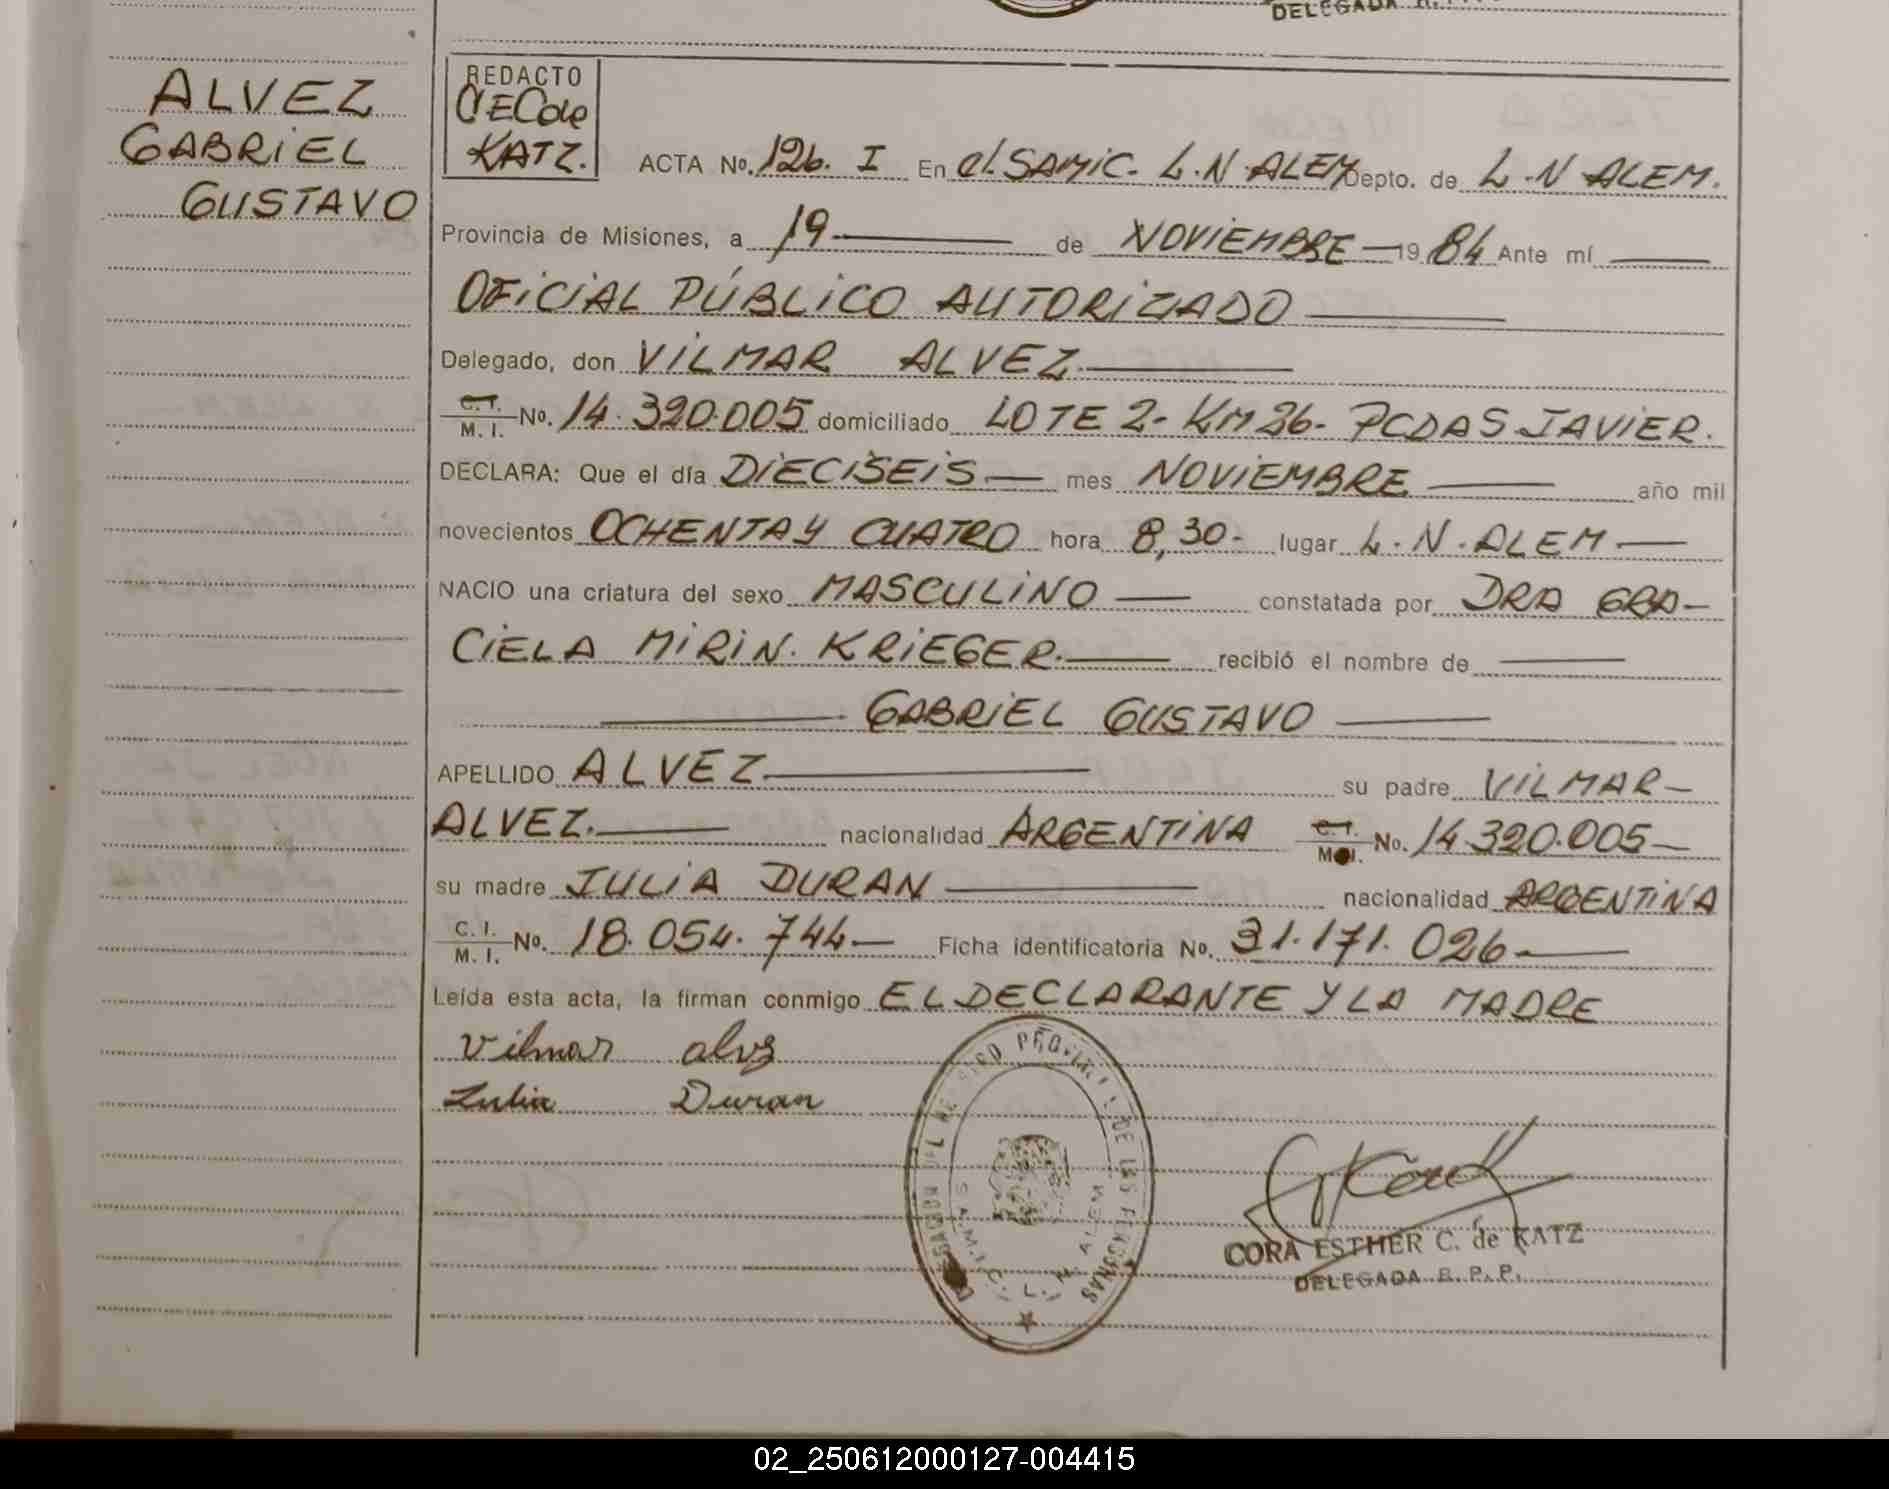 DELEGADA R.
ALVEZ
GABRIEL
GUSTAVO
REDACTO
CECde
KATZ.
ACTA No. 126. I En el SAMIC. L.N.ALEM Depto. de L.N ALEM.
Provincia de Misiones, a 19 de NOVIEMBRE 1984 Ante mí
OFICIAL PÚBLICO AUTORIZADO
Delegado, don VILMAR ALVEZ.
C.I. M.I. No. 14.320.005 domiciliado LOTE 2- KM 26- PCDAS JAVIER.
DECLARA: Que el día DIECISEIS mes NOVIEMBRE año mil
novecientos OCHENTA Y CUATRO hora 8,30- lugar L.N.ALEM
NACIO una criatura del sexo MASCULINO constatada por DRA GRA-
CIELA MIRIN. KRIEGER. recibió el nombre de
GABRIEL GUSTAVO
APELLIDO ALVEZ su padre VILMAR
ALVEZ. nacionalidad ARGENTINA C.I. M.I. No. 14.320.005
su madre JULIA DURAN nacionalidad ARGENTINA
C.I. M.I. No. 18.054.744 Ficha identificatoria No. 31.171.026
Leída esta acta, la firman conmigo EL DECLARANTE Y LA MADRE
Vilmar alvz
Julia Duran
DELEGACION DEL REGISTRO PROVINCIAL DE LAS PERSONAS
S.A.M.I.C. L.N. ALEM
CORA ESTHER C. de KATZ
DELEGADA R.P.P.
02_250612000127-004415